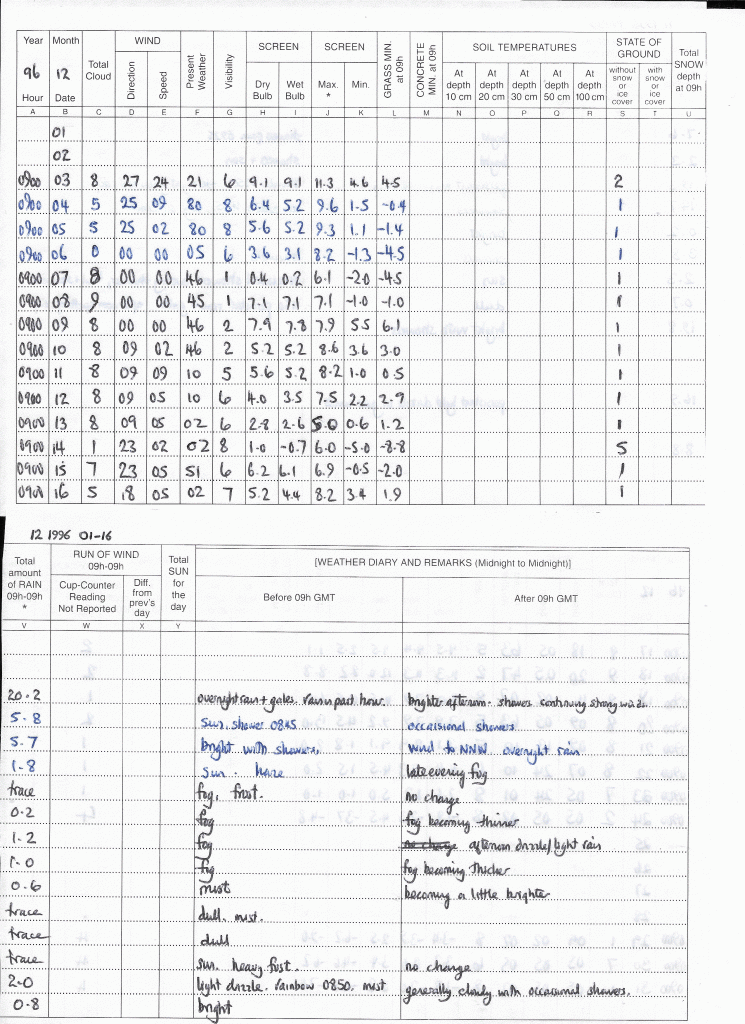 Year Month Total Cloud WIND Present Weather Visibility SCREEN SCREEN GRASS MIN. at 09h CONCRETE MIN. at 09h SOIL TEMPERATURES STATE OF GROUND Total SNOW depth at 09h
96 12 Direction Speed Dry Bulb Wet Bulb Max. * Min. At depth 10 cm At depth 20 cm At depth 30 cm At depth 50 cm At depth 100 cm without snow or ice cover with snow or ice cover
Hour Date
A B C D E F G H I J K L M N O P Q R S T U
01
02
0900 03 8 27 24 21 6 9.1 9.1 11.3 4.6 4.5 2
0900 04 5 25 09 80 8 6.4 5.2 9.6 1.5 -0.4 1
0900 05 5 25 02 80 8 5.6 5.2 9.3 1.1 -1.4 1
0900 06 0 00 00 05 6 3.6 3.1 8.2 -1.3 -4.5 1
0900 07 8 00 00 46 1 0.4 0.2 6.1 -2.0 -4.5 1
0900 08 9 00 00 45 1 7.1 7.1 7.1 -1.0 -1.0 1
0900 09 8 00 00 46 2 7.9 7.8 7.9 5.5 6.1 1
0900 10 8 09 02 46 2 5.2 5.2 8.6 3.6 3.0 1
0900 11 8 09 09 10 5 5.6 5.2 8.2 1.0 0.5 1
0900 12 8 09 05 10 6 4.0 3.5 7.5 2.2 2.9 1
0900 13 8 09 05 02 6 2.8 2.6 5.0 0.6 1.2 1
0900 14 1 23 02 02 8 1.0 -0.7 6.0 -5.0 -8.8 5
0900 15 7 23 05 51 6 6.2 6.1 6.9 -0.5 -2.0 1
0900 16 5 18 05 02 7 5.2 4.4 8.2 3.4 1.9 1
12 1996 01-16
Total amount of RAIN 09h-09h * RUN OF WIND 09h-09h Total SUN for the day [WEATHER DIARY AND REMARKS (Midnight to Midnight)]
Cup-Counter Reading Not Reported Diff. from prev's day Before 09h GMT After 09h GMT
V W X Y
20.2 overnight rain + gales. rain in past hour brighter afternoon. showers continuing strong winds.
5.8 sun. shower 0845 occasional showers.
5.7 bright with showers. wind to NNW overnight rain
1.8 sun. haze late evening fog
trace fog, frost. no change
0.2 fog fog becoming thinner
1.2 fog no change afternoon drizzle/light rain
1.0 fog fog becoming thicker
0.6 mist becoming a little brighter
trace dull. mist.
trace dull
trace sun. heavy frost. no change
2.0 light drizzle. rainbow 0850. mist generally cloudy with occasional showers.
0.8 bright